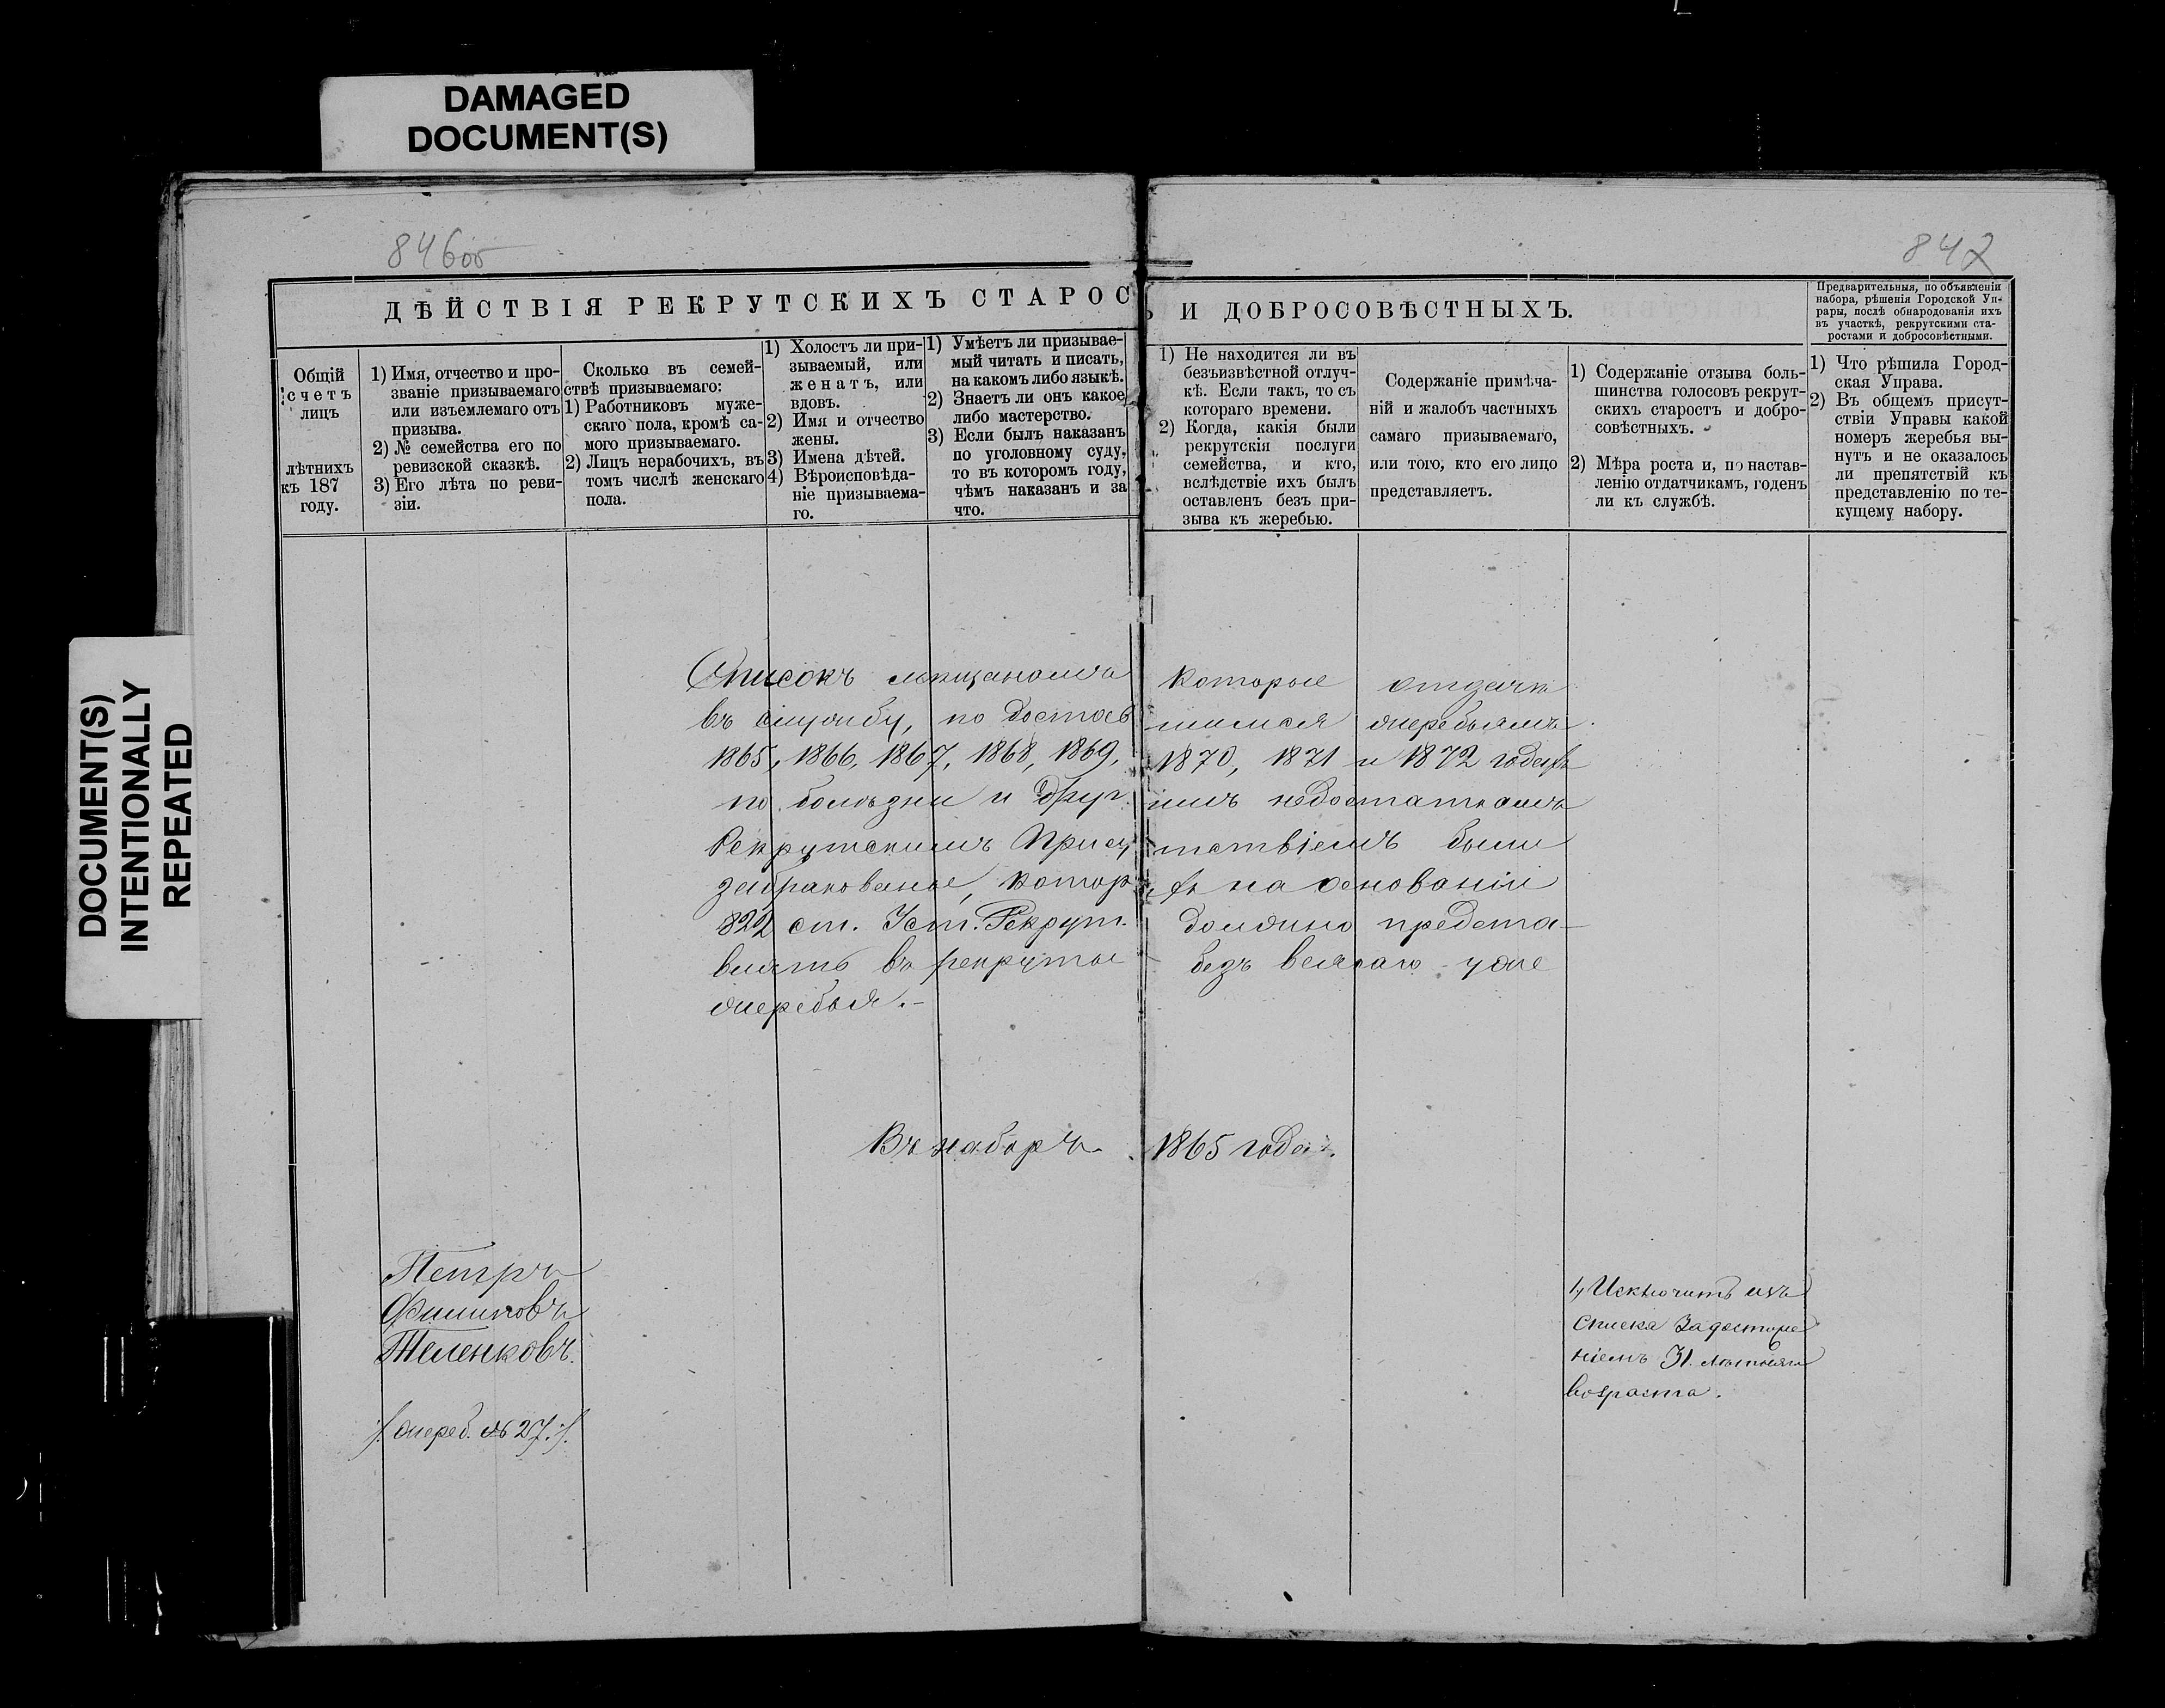 DAMAGED
DOCUMENT(S)
DOCUMENT(S)
INTENTIONALLY
REPEATED
846об
847
ДѢЙСТВІЯ РЕКРУТСКИХЪ СТАРОС
Ъ И ДОБРОСОВѢСТНЫХЪ.
Общій
счетъ
лицъ
лѣтнихъ
къ 187
году.
1) Имя, отчество и про-
званіе призываемаго
или изъемлемаго отъ
призыва.
2) № семейства его по
ревизской сказкѣ.
3) Его лѣта по реви-
зіи.
Сколько въ семей-
ствѣ призываемаго:
1) Работниковъ муже-
скаго пола, кромѣ са-
мого призываемаго.
2) Лицъ нерабочихъ, въ
томъ числѣ женскаго
пола.
1) Холостъ ли при-
зываемый, или
женатъ, или
вдовъ.
2) Имя и отчество
жены.
3) Имена дѣтей.
4) Вѣроисповѣда-
ніе призываема-
го.
1) Умѣетъ ли призывае-
мый читать и писать,
на какомъ либо языкѣ.
2) Знаетъ ли онъ какое
либо мастерство.
3) Если былъ наказанъ
по уголовному суду,
то въ которомъ году,
чѣмъ наказанъ и за
что.
1) Не находится ли въ
безъизвѣстной отлуч-
кѣ. Если такъ, то съ
котораго времени.
2) Когда, какія были
рекрутскія послуги
семейства, и кто,
вслѣдствіе ихъ былъ
оставленъ безъ при-
зыва къ жеребью.
Содержаніе примѣча-
ній и жалобъ частныхъ
самаго призываемаго,
или того, кто его лицо
представляетъ.
1) Содержаніе отзыва боль-
шинства голосовъ рекрут-
скихъ старостъ и добро-
совѣстныхъ.
2) Мѣра роста и, по настав-
ленію отдатчикамъ, годенъ
ли къ службѣ.
Предварительныя, по объявленіи
набора, рѣшенія Городской Уп-
рары, послѣ обнародованія ихъ
въ участкѣ, рекрутскими ста-
ростами и добросовѣстными.
1) Что рѣшила Город-
ская Управа.
2) Въ общемъ присут-
ствіи Управы какой
номеръ жеребья вы-
нутъ и не оказалось
ли препятствій къ
представленію по те-
кущему набору.
Списокъ мѣщанамъ которые отдачи
въ службу, по достав шимся жеребьямъ
1865, 1866, 1867, 1868, 1869, 1870, 1871 и 1872 годахъ
по болѣзни и друг имъ недостаткамъ
Рекрутскимъ Прису тствіемъ были
забракованые, котор ых на основаніи
822 ст. Уст. Рекрут. должно предста-
влять въ рекруты безъ всякаго уже
жеребья.-
Въ наборъ 1865 года.
Петръ
Филиповъ
Теленковъ.
/. жереб. № 27. /.
1, Исключить изъ
списка за достиже
ніемъ 31. лѣтняго
возраста.